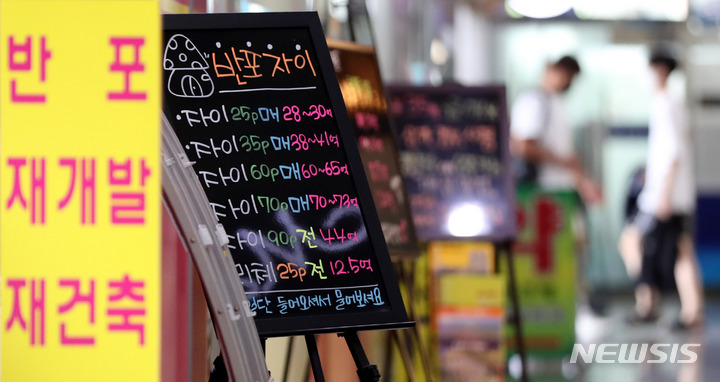 반포
재개발
재건축
반포자이
자이 25p 매 28~30억
자이 35p 매 38~41억
자이 60p 매 60~65억
자이 70p 매 70~73억
자이 90p 전 44억
리체 25p 전 12.5억
일단 들어오셔서 물어보세요
NEWSIS